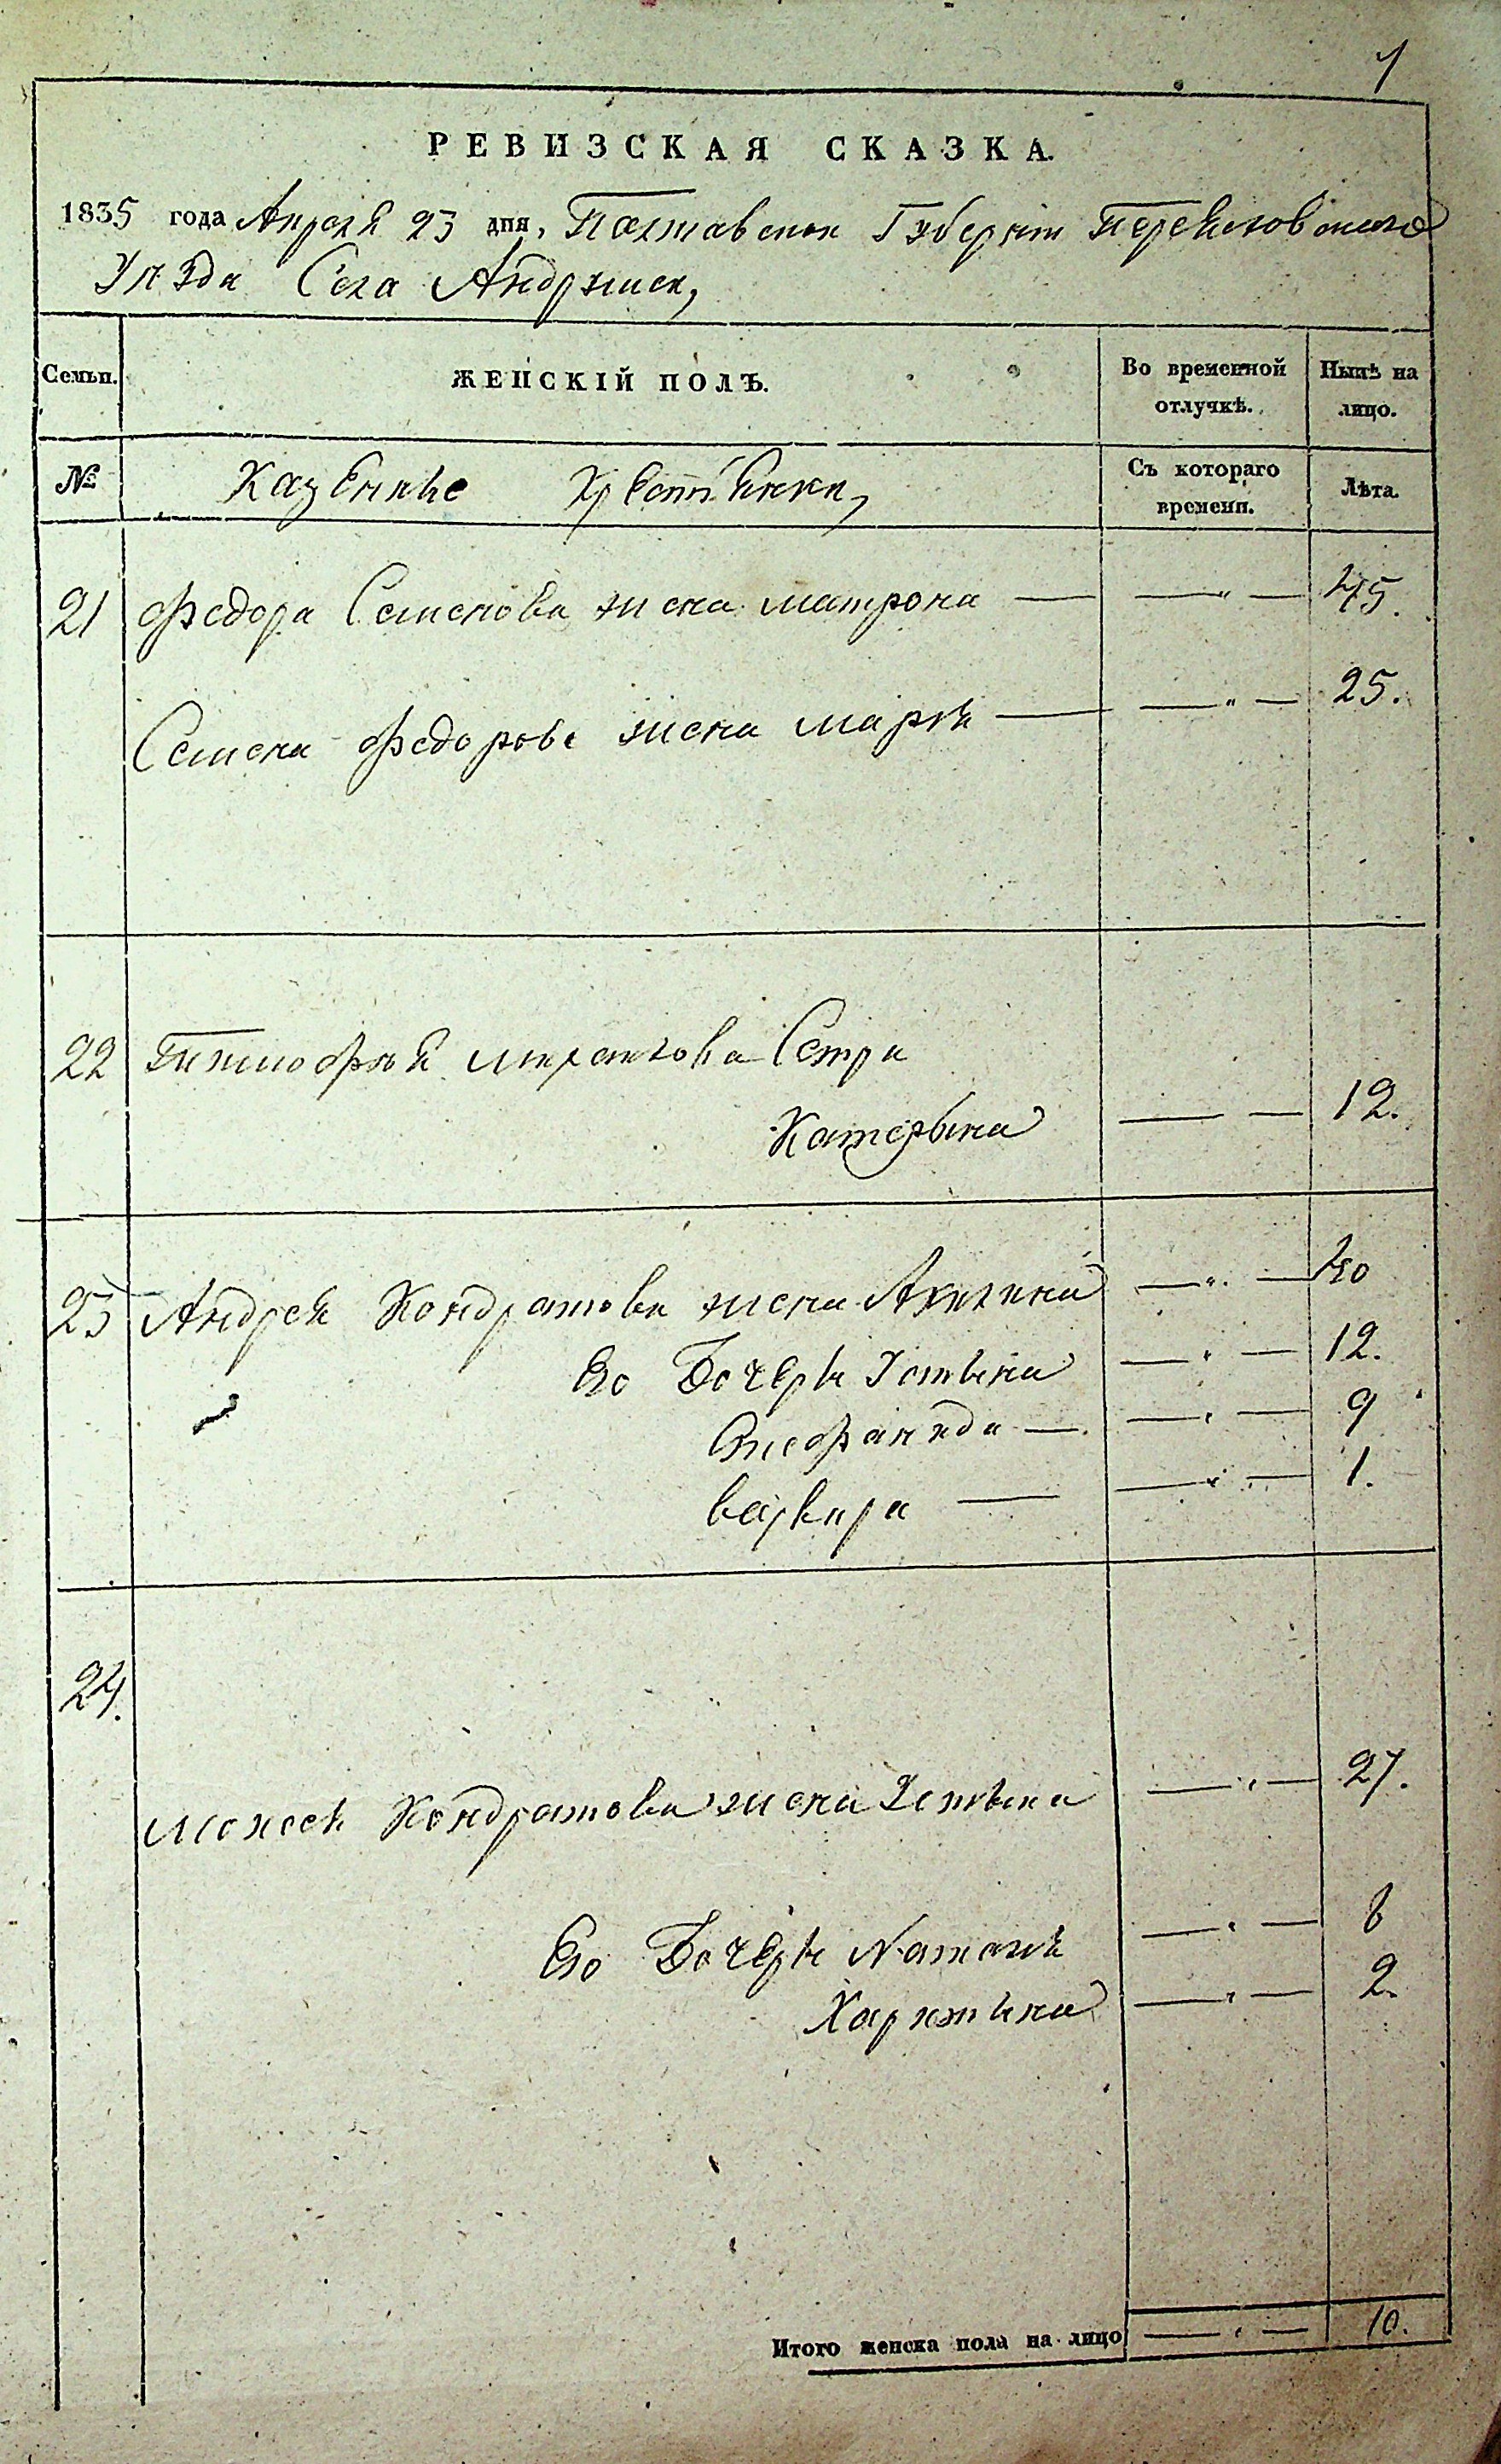 7
РЕВИЗСКАЯ СКАЗКА.
1835 года Апреля 23 дня, Полтавской Губернии Переяловского
Уезда Села Андруши,
Семьи. ЖЕНСКІЙ ПОЛЪ. Во временной отлучкѣ. Нынѣ на лицо.
№ Казенные Крестьянки, Съ котораго времени. Лѣта.
21 Федора Семенова жена матрона — — " — 45.
Семена Федорова жена марья — — " — 25.
22 Тимофея Сестра
Катерына — — 12.
23 Андрея Кондратова жена Акилина — " — 40
Его Дочеры Устына — " — 12.
— — " — 9
варвара — — " — 1.
24.
моисея Кондратова жена Устына — " — 27.
Его Дочеры Наталя — " — 6
Харитына — " — 2.
Итого женска пола на лицо — " — 10.